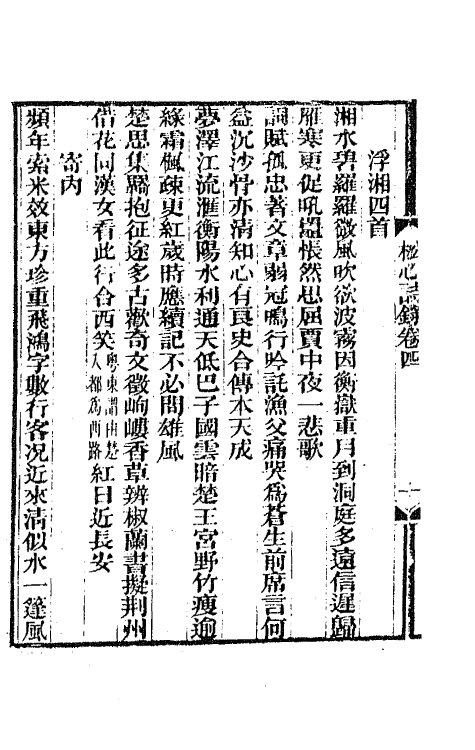 心詩錄卷四
浮湘四首
湘水碧羅羅微風吹欲波霧因衡嶽重月到洞庭多遠信遲歸
雁寒更促吼鼉悵然思屈賈中夜一悲歌
詞賦孤忠著文章弱冠鳴行吟託漁父痛哭爲蒼生前席言何
益沉沙骨亦清知心有良史合傳本天成
夢澤江流滙衡陽水利通天低巴子國雲暗楚王宮野竹瘦逾
綠霜楓疎更紅歲時應續記不必問雄風
楚思集騷抱征途多古歡奇文徵岣嶁香草辨椒蘭書擬荆州
借花同漢女看此行合西笑粵東謂由楚入都爲西路紅日近長安
寄內
頻年索米效東方珍重飛鴻字數行客況近來清似水一篷風